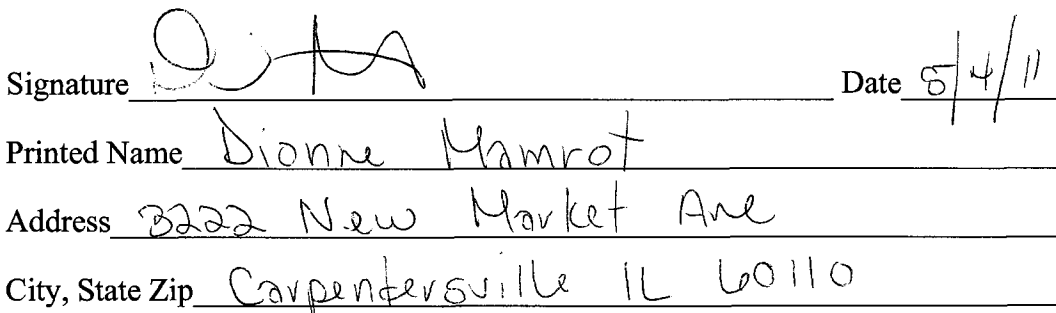 Signature Date 5/4/11
Printed Name Dionne Mamrot
Address 3222 New Market Ave
City, State Zip Carpentersville IL 60110